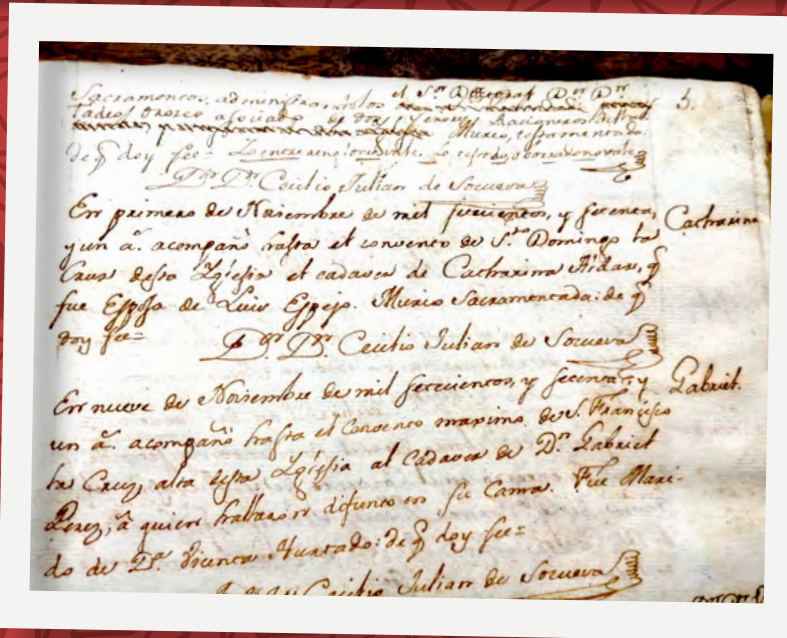 Sacramentos, administramelos el S.r Doctoral D.or D.n
Tadeo Orosco asociado de dos Señores Racioneros
Murio, testamentado:
de q̃ doy fee= Lo entre reng.s
D.or D.n Cecilio Julian de Socueva
En primero de Noviembre de mil setecientos, y setenta,
y un a.s acompañó hasta el convento de S.to Domingo la
Cruz desta Yglesia el cadaver de Catharina Aidar, q̃
fue Esposa de Luis Espejo. Murio Sacramentada: de q̃
doy fee=
D.or D.n Cecilio Julian de Socueva
En nueve de Noviembre de mil setecientos, y setenta, y
un a.s acompañó hasta el Convento maximo de S. Francisco
la Cruz alta desta Yglesia al cadaver de D.n Gabriel
Perez, á quien hallaron difunto en su Cama. Fue Mari-
do de D.a Vicenta Hurtado: de q̃ doy fee=
D.or D.n Cecilio Julian de Socueva
5.
Catharina
Gabriel.